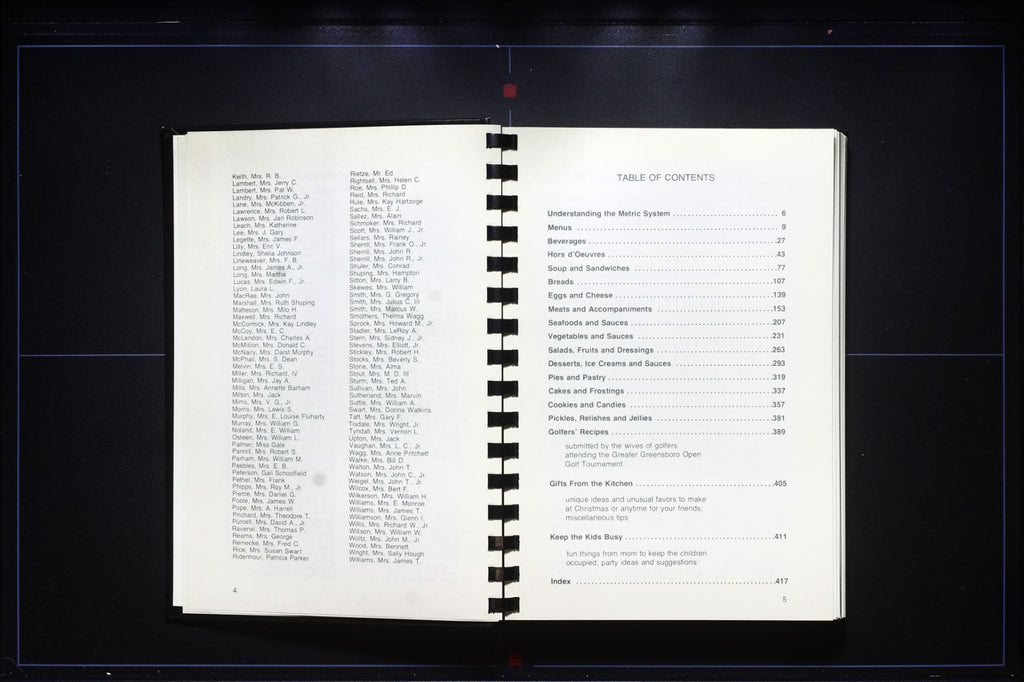 Keith, Mrs. R. B.
Lambert, Mrs. Jerry C.
Lambert, Mrs. Pat W.
Landry, Mrs. Patrick G., Jr.
Lane, Mrs. McKibben, Jr.
Lawrence, Mrs. Robert L.
Lawson, Mrs. Jan Robinson
Leach, Mrs. Katherine
Lee, Mrs. J. Gary
Legette, Mrs. James F.
Lilly, Mrs. Eric V.
Lindley, Sheila Johnson
Lineweaver, Mrs. F. B.
Long, Mrs. James A., Jr.
Long, Mrs. Martha
Lucas, Mrs. Edwin F., Jr.
Lyon, Laura L.
MacRae, Mrs. John
Marshall, Mrs. Ruth Shuping
Matheson, Mrs. Milo H.
Maxwell, Mrs. Richard
McCormick, Mrs. Kay Lindley
McCoy, Mrs. E. C.
McLendon, Mrs. Charles A.
McMillion, Mrs. Donald C.
McNairy, Mrs. Darst Murphy
McPhail, Mrs. S. Dean
Melvin, Mrs. E. S.
Miller, Mrs. Richard, IV
Milligan, Mrs. Jay A.
Mills, Mrs. Annette Barham
Milton, Mrs. Jack
Mims, Mrs. V. G., Jr.
Morris, Mrs. Lewis S.
Murphy, Mrs. E. Louise Fluharty
Murray, Mrs. William G.
Noland, Mrs. E. William
Osteen, Mrs. William L.
Palmer, Miss Gale
Pannill, Mrs. Robert S.
Parham, Mrs. William M.
Peebles, Mrs. E. B.
Peterson, Gail Schoolfield
Pethel, Mrs. Frank
Phipps, Mrs. Roy M., Jr.
Pierce, Mrs. Daniel G.
Poole, Mrs. James W.
Pope, Mrs. A. Harrell
Prichard, Mrs. Theodore T.
Purcell, Mrs. David A., Jr.
Ravenel, Mrs. Thomas P.
Reams, Mrs. George
Reinecke, Mrs. Fred C.
Rice, Mrs. Susan Swart
Ridenhour, Patricia Parker
Rietze, Mr. Ed
Rightsell, Mrs. Helen C.
Roe, Mrs. Phillip D.
Reid, Mrs. Richard
Rule, Mrs. Kay Hartzoge
Sachs, Mrs. E. J.
Sallez, Mrs. Alain
Schmoker, Mrs. Richard
Scott, Mrs. William J., Jr.
Sellars, Mrs. Rainey
Sherrill, Mrs. Frank O., Jr.
Sherrill, Mrs. John R.
Sherrill, Mrs. John R., Jr.
Shuler, Mrs. Conrad
Shuping, Mrs. Hampton
Sitton, Mrs. Larry B.
Skewes, Mrs. William
Smith, Mrs. G. Gregory
Smith, Mrs. Julius C. III
Smith, Mrs. Marcus W.
Smothers, Thelma Wagg
Sprock, Mrs. Howard M., Jr.
Stadler, Mrs. LeRoy A.
Stern, Mrs. Sidney J., Jr.
Stevens, Mrs. Elliott, Jr.
Stickley, Mrs. Robert H.
Stocks, Mrs. Beverly S.
Stone, Mrs. Alma
Stout, Mrs. M. D. III
Sturm, Mrs. Ted A.
Sullivan, Mrs. John
Sutherland, Mrs. Marvin
Suttle, Mrs. William A.
Swart, Mrs. Donna Watkins
Taft, Mrs. Gary F.
Tisdale, Mrs. Wright, Jr.
Tyndall, Mrs. Vernon L.
Upton, Mrs. Jack
Vaughan, Mrs. L. C., Jr.
Wagg, Mrs. Anne Pritchett
Walke, Mrs. Bill D.
Walton, Mrs. John T.
Watson, Mrs. John C., Jr.
Weigel, Mrs. John T., Jr.
Wilcox, Mrs. Bert F.
Wilkerson, Mrs. William H.
Williams, Mrs. E. Monroe
Williams, Mrs. James T.
Williamson, Mrs. Glenn I.
Willis, Mrs. Richard W., Jr.
Willson, Mrs. William W.
Woltz, Mrs. John M., Jr.
Wood, Mrs. Bennett
Wright, Mrs. Sally Hough
Williams, Mrs. James T.
4
TABLE OF CONTENTS
Understanding the Metric System ........................ 6
Menus ........................ 9
Beverages ........................ 27
Hors d'Oeuvres ........................ 43
Soup and Sandwiches ........................ 77
Breads ........................ 107
Eggs and Cheese ........................ 139
Meats and Accompaniments ........................ 153
Seafoods and Sauces ........................ 207
Vegetables and Sauces ........................ 231
Salads, Fruits and Dressings ........................ 263
Desserts, Ice Creams and Sauces ........................ 293
Pies and Pastry ........................ 319
Cakes and Frostings ........................ 337
Cookies and Candies ........................ 357
Pickles, Relishes and Jellies ........................ 381
Golfers' Recipes ........................ 389
submitted by the wives of golfers
attending the Greater Greensboro Open
Golf Tournament
Gifts From the Kitchen ........................ 405
unique ideas and unusual favors to make
at Christmas or anytime for your friends;
miscellaneous tips
Keep the Kids Busy ........................ 411
fun things from mom to keep the children
occupied; party ideas and suggestions
Index ........................ 417
5